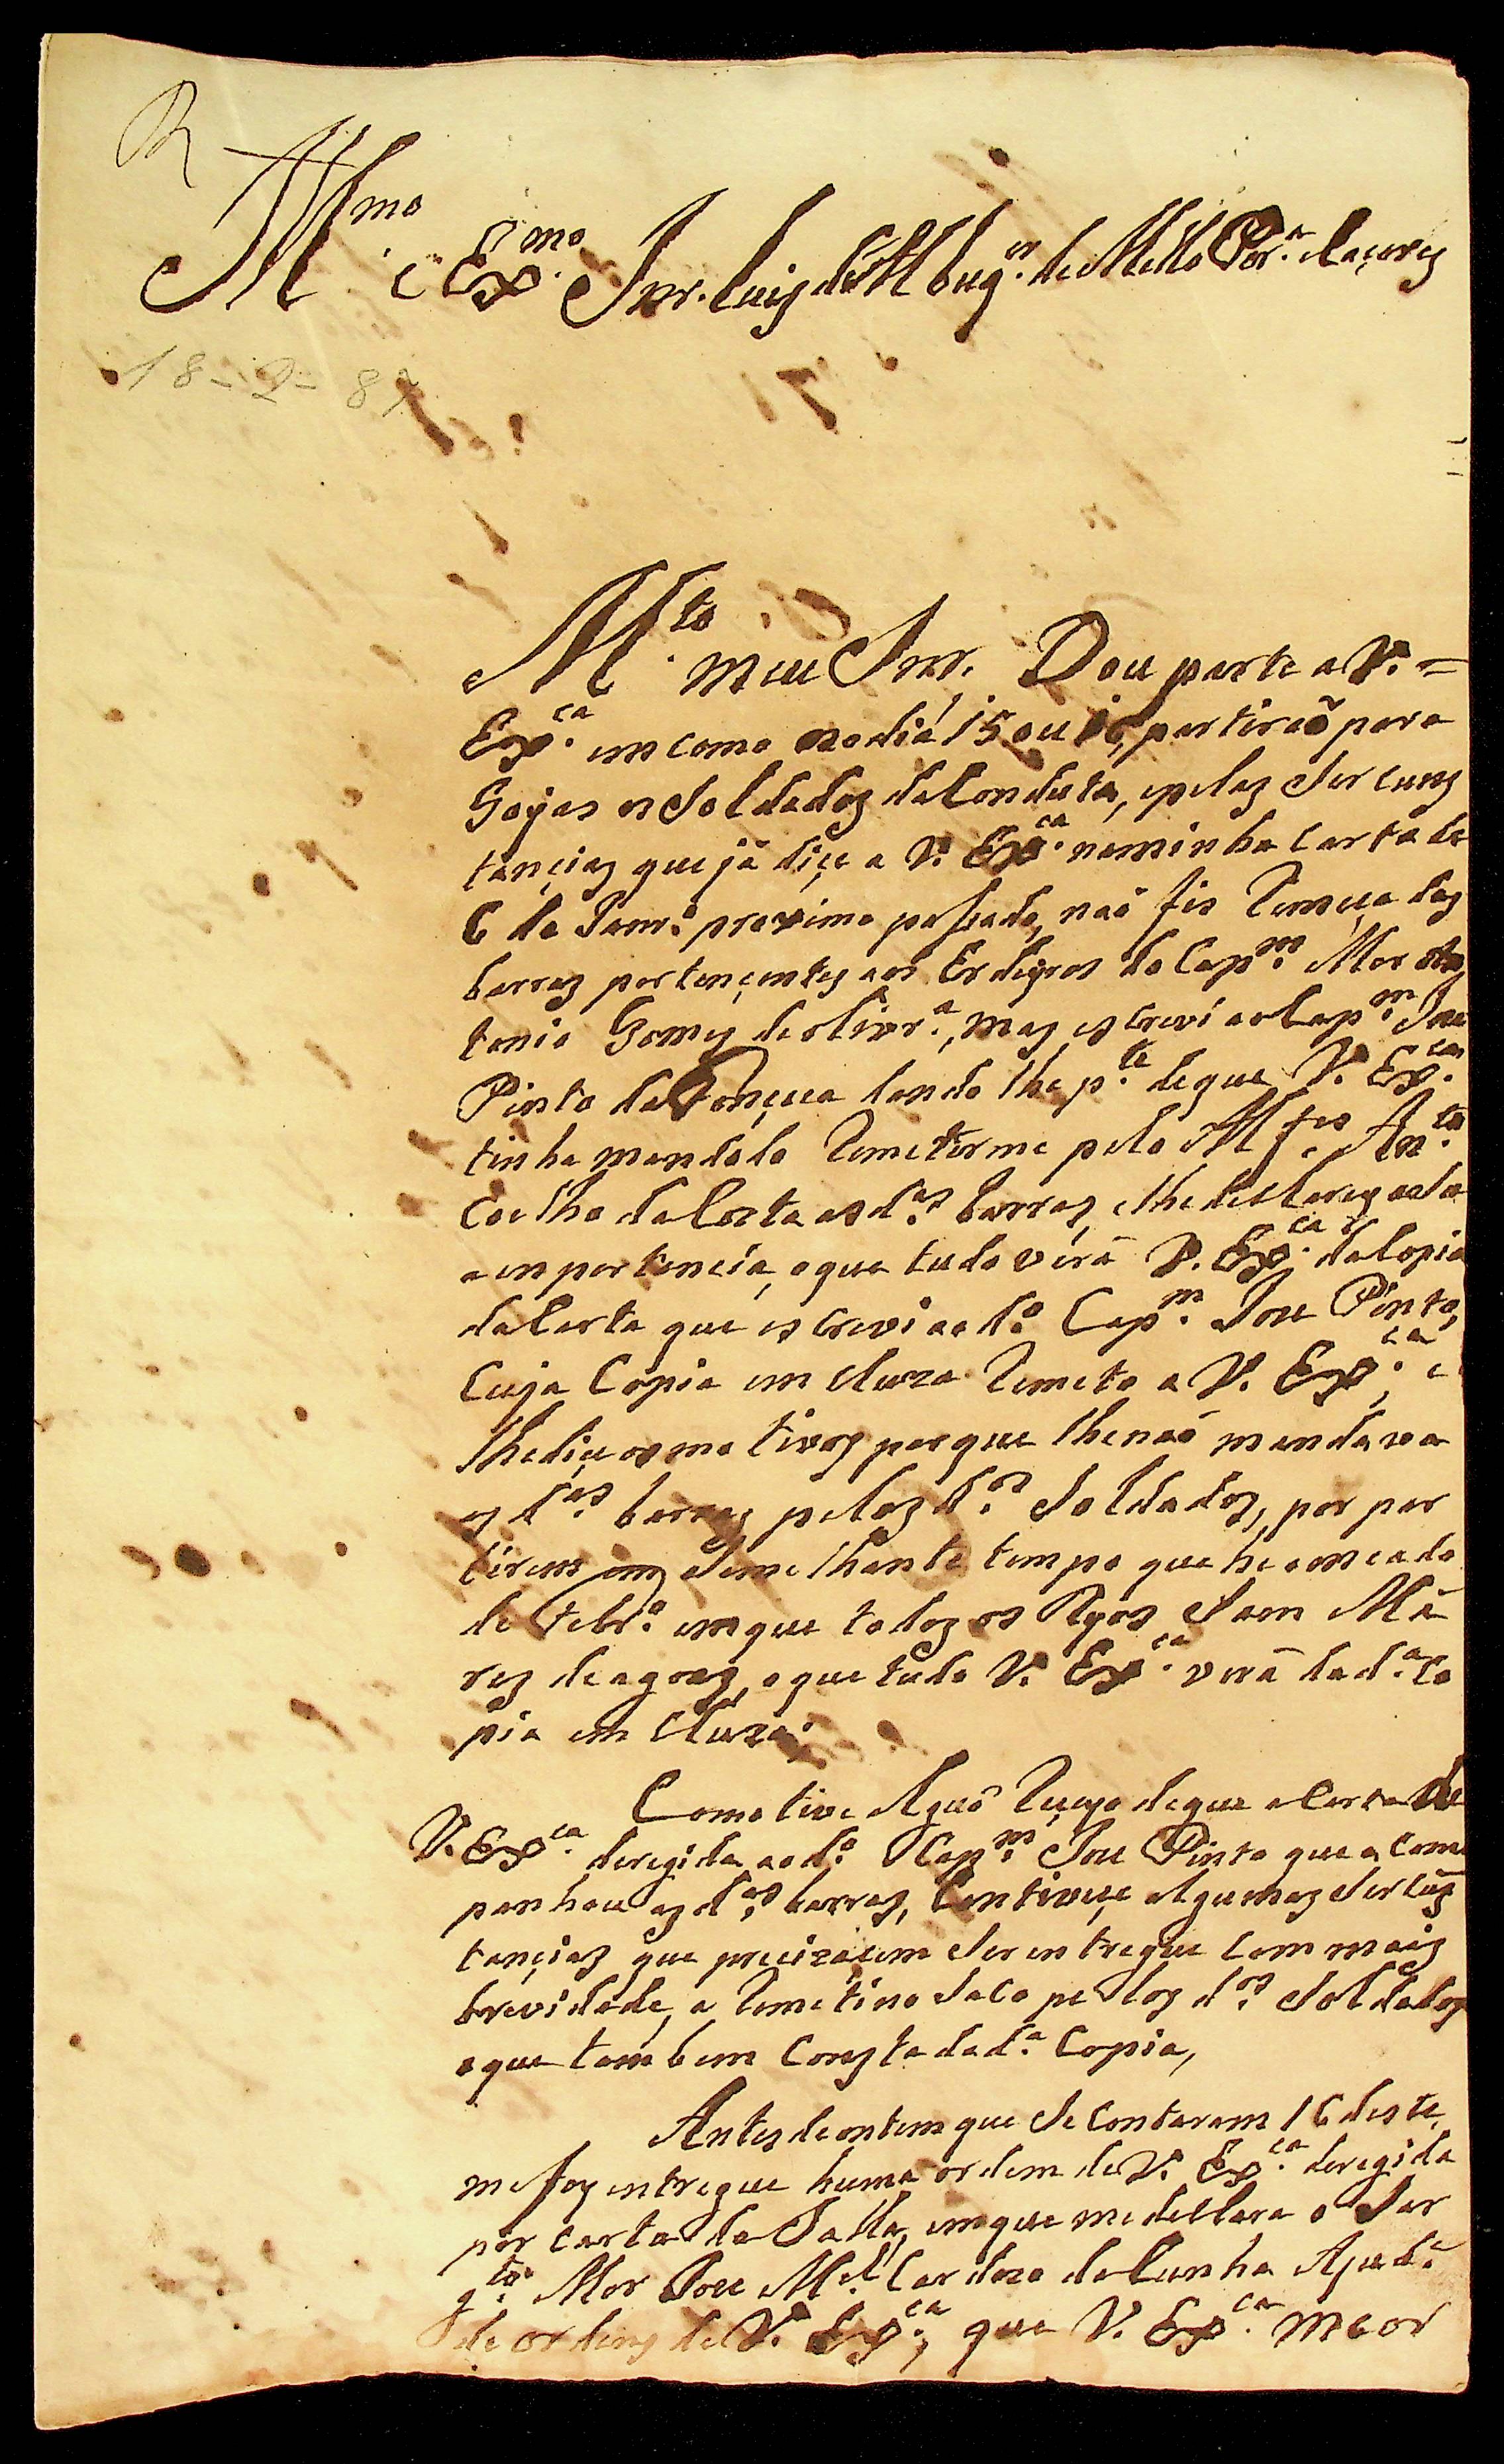 R
Ill.mo e Ex.mo Snr. Luis de Albuq.er de Mello Per.a e Caçerez
18-2-87
M.to meu Snr. Dou parte a V. =
Ex.ca em como no dia 15 ou 16, partiraõ para
Goyas os Soldadoz da Conduta, e pelaz Sercunz
tançiaz que jâ diçe a V. Ex.ca na minha Carta de
6 de Janr.o proximo paçado, naõ fis Remeça daz
barraz pertençentez aos Erdeyros do Cap.m Mor An
tonio Gomez de olivr.a, maz ezcrevi ao Cap.m Joze
Pinto da Fonçeca dando lhe p.te de que V. Ex.ca
tinha mandado Remeterme pelo Alferes An.to
Coelho da Costa as d.as barraz, e lhe declarey a sua
a importancia, o que tudo verâ V. Ex.ca da Copia
da Carta que ezcrevi ao d.o Cap.m Joze Pinto,
Cuja Copia em cluza Remeto a V. Ex.ca, e
lhe diçe os motivoz porque lhe naõ mandava
az d.as barraz peloz d.os Soldadoz, por par
tirem em Semelhante tempo que he o meado
de Febr.o em que todoz os Ryos Sam Mâ
rez de agoaz, o que tudo V. Ex.ca verâ da d.a Co
pia em cluza.
Como tive Algũ Reçeyo de que a Carta de
V. Ex.ca deregida ao d.o Cap.m Joze Pinto que a com
panhou az d.as barraz, Contiveçe algumaz Sercũz
tançiaz que precizacem Ser entregue Com maiz
brevidade, a Remeti no Saco peloz d.os Soldadoz
o que tambem Conzta da d.a Copia,
Antez de ontem que Se Contaram 16 deste,
me foy entregue huma ordem de V. Ex.ca deregida
por carta da Salla, em que me declara o Sar
g.to Mor Joze M.el Cardozo da Cunha Ajud.e
de ordenz de V. Ex.ca, que V. Ex.ca me or